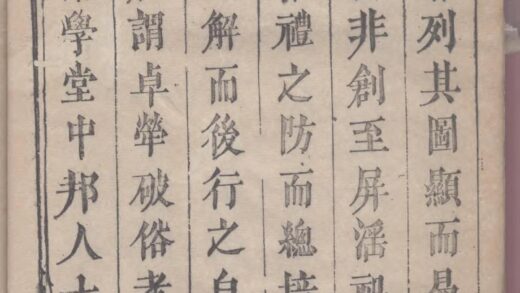 列其圖顯而易
非創至屏滛
禮之防而總
解而後行之
謂卓犖破俗者
學堂中邦人士